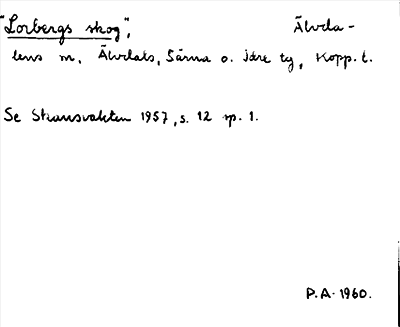 "Lorbergs skog", Älvda-
lens m, Älvdals, Särna o. Idre tg, Kopp. l.
Se Skansvakten 1957, s. 12 sp. 1.
P.A. 1960.